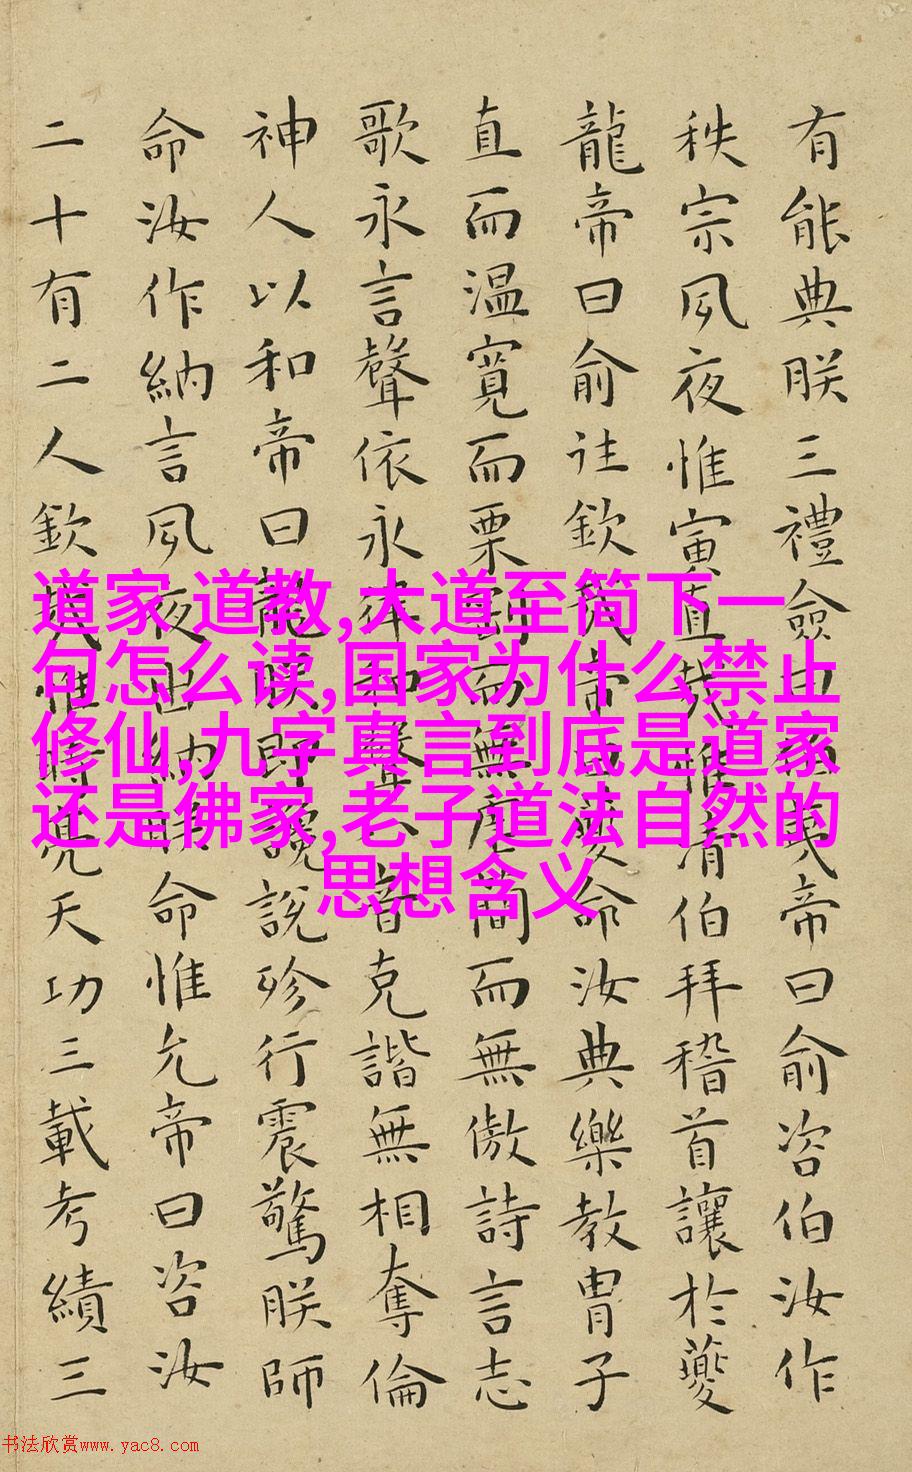 有能典朕三禮僉曰伯夷帝曰俞咨伯汝作
秩宗夙夜惟寅直哉惟清伯拜稽首讓於夔
龍帝曰俞往欽哉帝曰夔命汝典樂教冑子
直而温寬而栗剛而無虐簡而無傲詩言志
歌永言聲依永律和聲八音克諧無相奪倫
神人以和帝曰龍朕堲讒說殄行震驚朕師
命汝作納言夙夜出納朕命惟允帝曰咨汝
二十有二人欽哉惟時亮天功三載考績三
道家 道教,大道至简下一
句怎么读,国家为什么禁止
修仙,九字真言到底是道家
还是佛家,老子道法自然的
思想含义
书法欣赏www.yac8.com